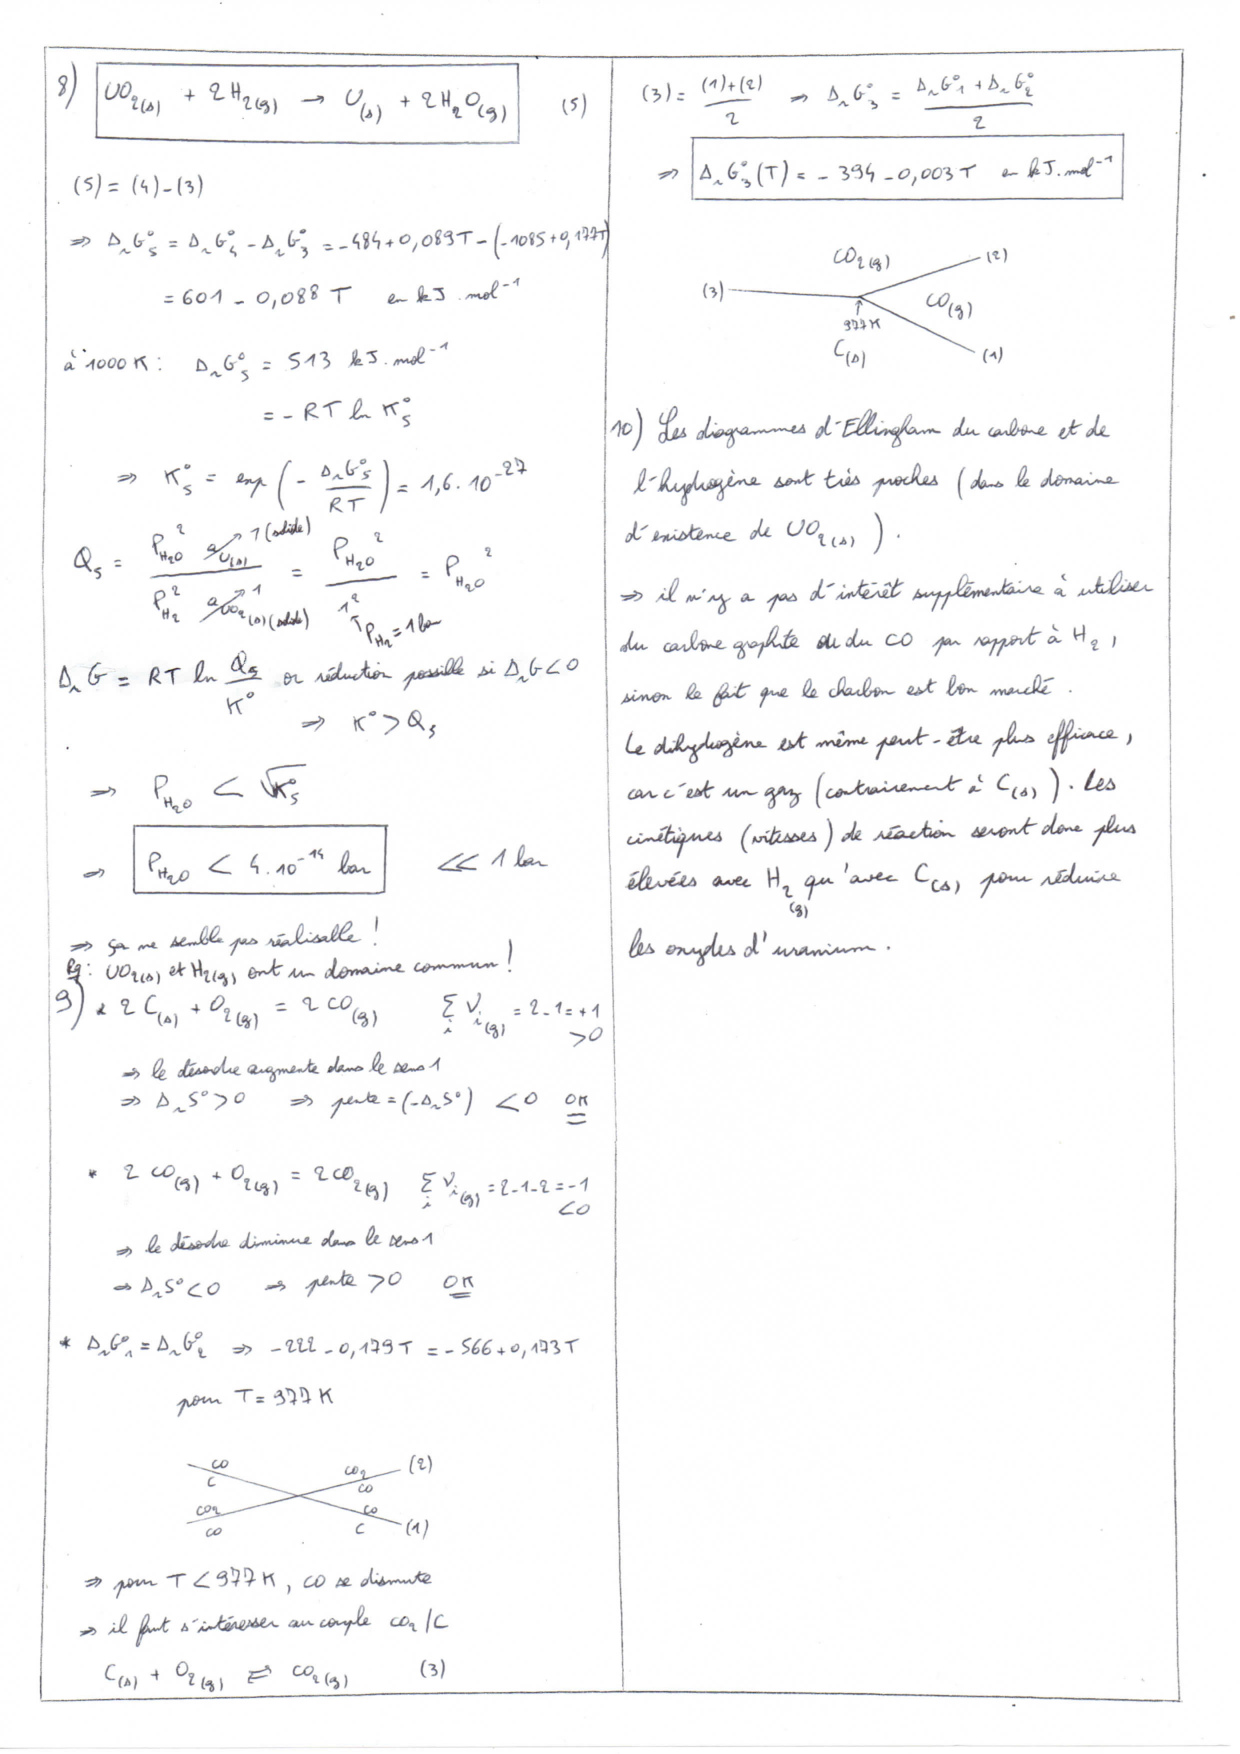 8) UO2(s) + 2H2(g) → U(s) + 2H2O(g) (5)
(5) = (4) - (3)
⇒ ΔrG°5 = ΔrG°4 - ΔrG°3 = -484+0,089T-(-1085+0,177T)
= 601 - 0,088 T en kJ.mol⁻¹
à 1000 K : ΔrG°5 = 513 kJ.mol⁻¹
= - RT ln K°5
⇒ K°5 = exp(- ΔrG°5 / RT) = 1,6.10⁻²⁷
Q5 = PH2O² aU(s) → 1 (solide) / PH2² aUO2(s) → 1 (solide) = PH2O² / 1² = PH2O²
↑ PH2 = 1 bar
ΔrG = RT ln Q5/K° or réduction possible si ΔrG<0
⇒ K° > Q5
⇒ PH2O < √K°5
⇒ PH2O < 4.10⁻¹⁴ bar << 1 bar
⇒ ça me semble pas réalisable !
Rq : UO2(s) et H2(g) ont un domaine commun !
9) * 2 C(s) + O2(g) = 2 CO(g) Σi νi(g) = 2-1 = +1 >0
⇒ le désordre augmente dans le sens 1
⇒ ΔrS°>0 ⇒ pente = (-ΔrS°) <0 OK
* 2 CO(g) + O2(g) = 2CO2(g) Σi νi(g) = 2-1-2 = -1 <0
⇒ le désordre diminue dans le sens 1
⇒ ΔrS°<0 ⇒ pente >0 OK
* ΔrG°1 = ΔrG°2 ⇒ -222 - 0,179 T = -566+0,173T
pour T = 977 K
CO CO2 (2)
C CO
CO2 CO
CO C (1)
⇒ pour T < 977 K, CO se dismute
⇒ il faut s'intéresser au couple CO2/C
C(s) + O2(g) ⇌ CO2(g) (3)
(3) = (1)+(2) / 2 ⇒ ΔrG°3 = ΔrG°1 + ΔrG°2 / 2
⇒ ΔrG°3(T) = - 394 - 0,003 T en kJ.mol⁻¹
CO2(g) (2)
(3) CO(g)
↑ 977 K
C(s) (1)
10) Les diagrammes d'Ellingham du carbone et de
l'hydrogène sont très proches (dans le domaine
d'existence de UO2(s)).
⇒ il n'y a pas d'intérêt supplémentaire à utiliser
du carbone graphite ou du CO par rapport à H2,
sinon le fait que le charbon est bon marché.
Le dihydrogène est même peut-être plus efficace,
car c'est un gaz (contrairement à C(s)). Les
cinétiques (vitesses) de réaction seront donc plus
élevées avec H2(g) qu'avec C(s) pour réduire
les oxydes d'uranium.